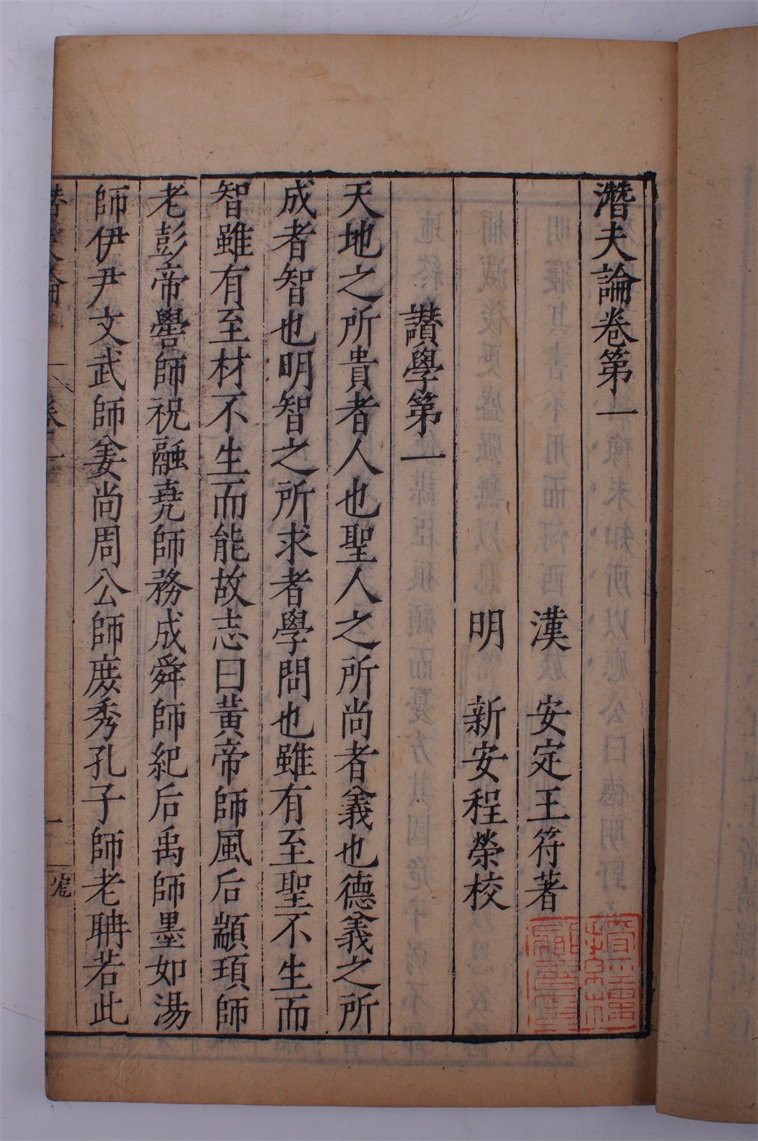 潛夫論卷第一
漢 安定王符著
明 新安程榮校
讃學第一
天地之所貴者人也聖人之所尚者義也德義之所
成者智也明智之所求者學問也雖有至聖不生而
智雖有至材不生而能故志曰黃帝師風后顓頊師
老彭帝嚳師祝融堯師務成舜師紀后禹師墨如湯
師伊尹文武師姜尚周公師庻秀孔子師老聃若此